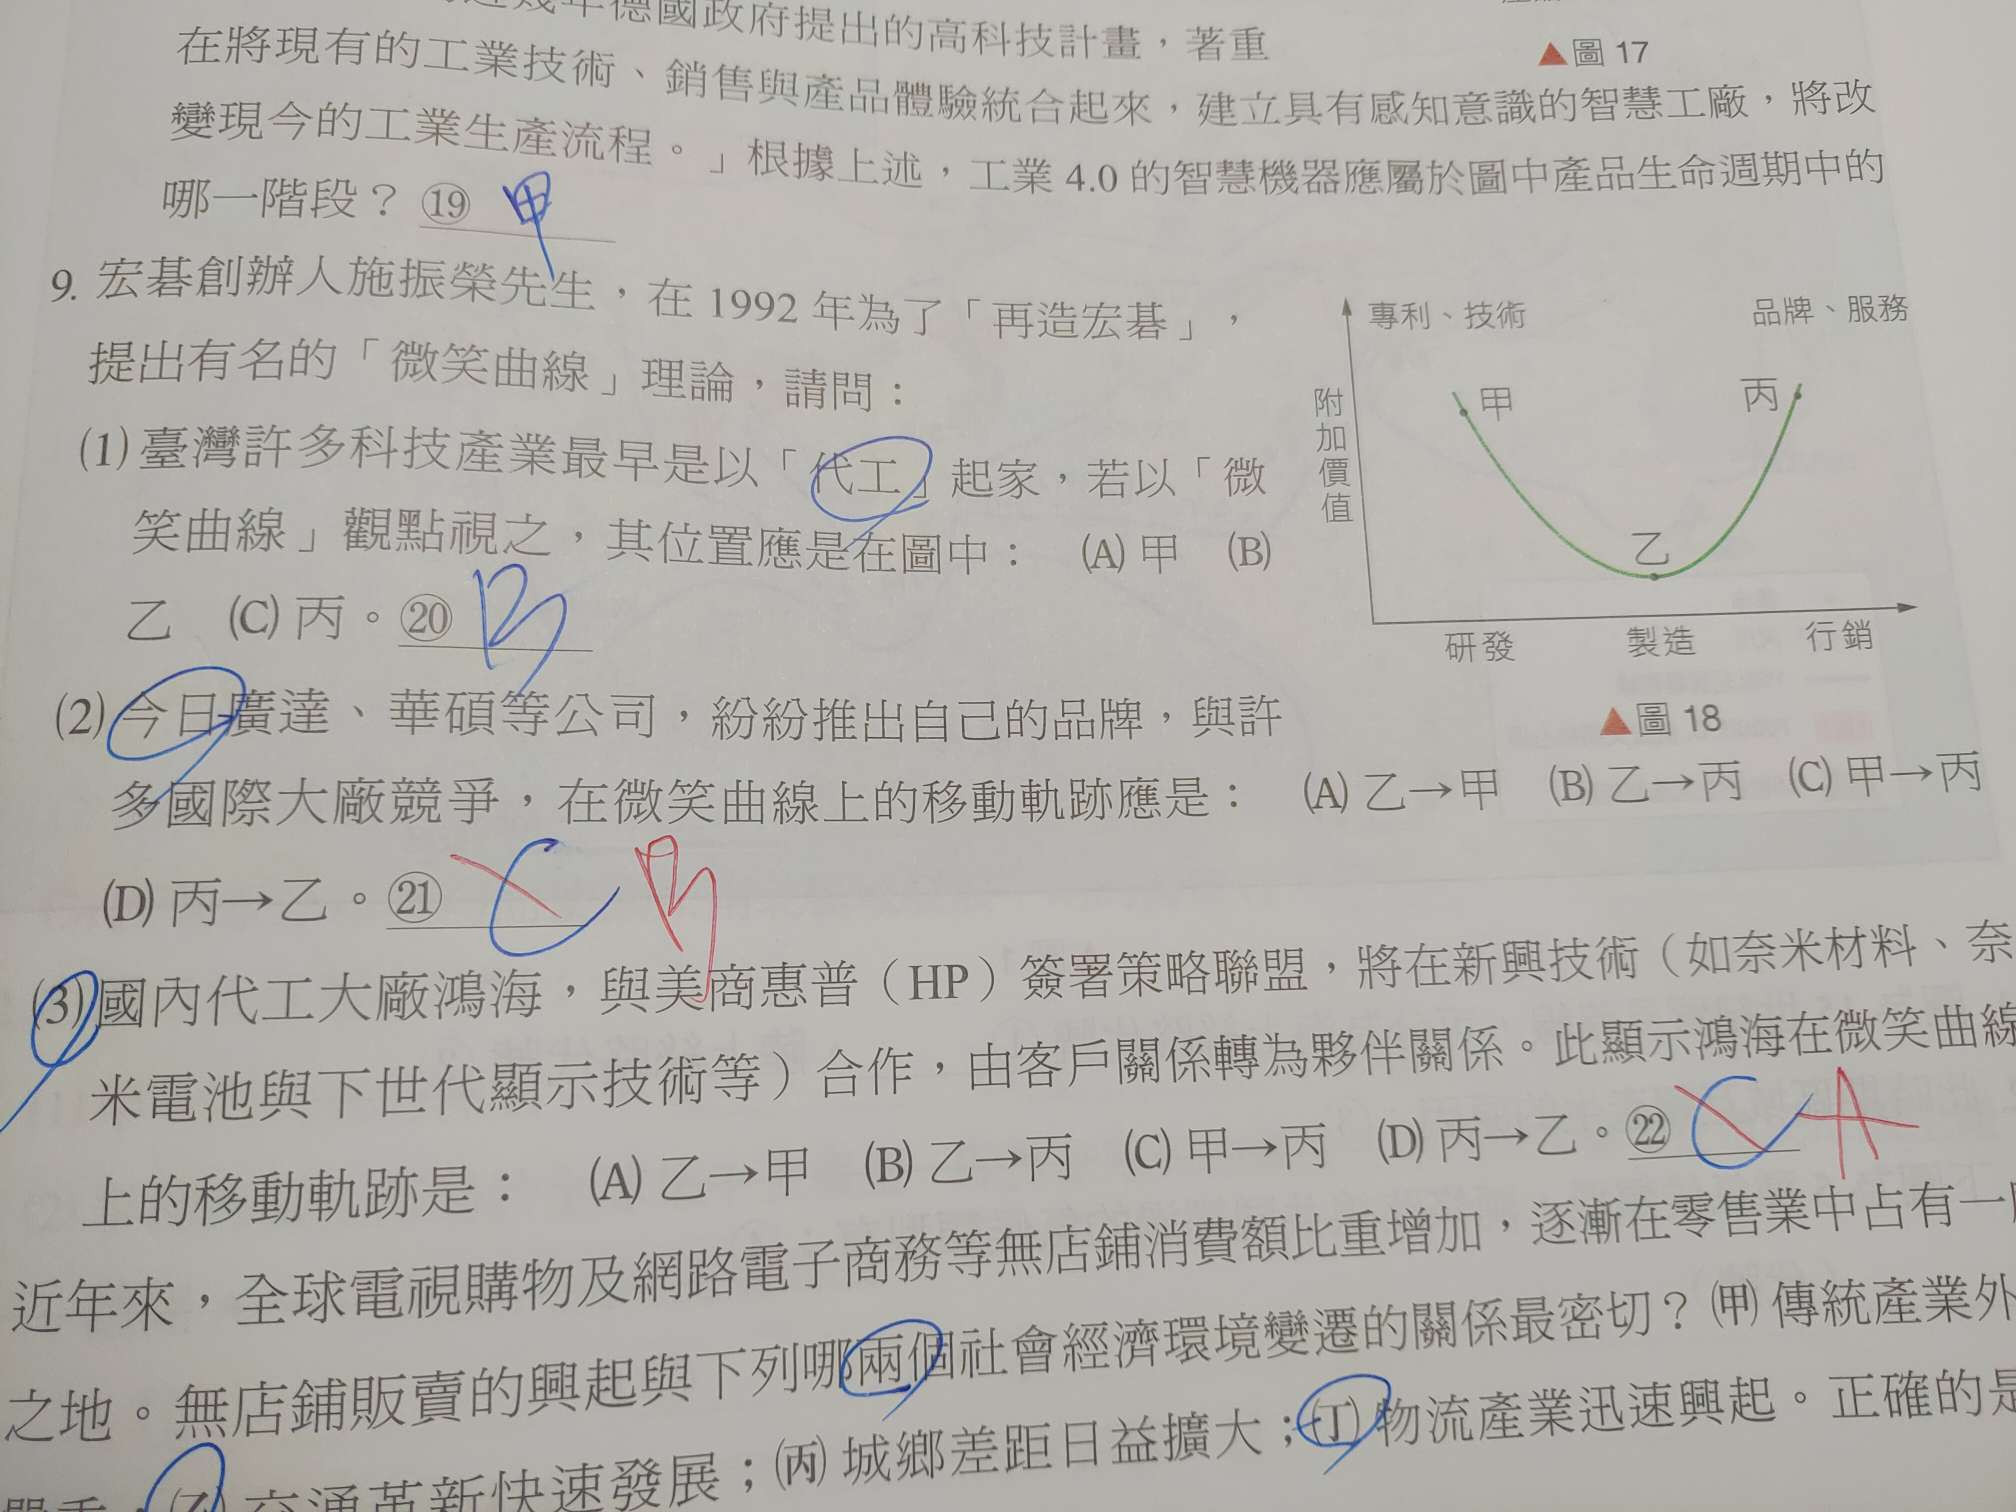 近幾年德國政府提出的高科技計畫，著重
▲圖 17
在將現有的工業技術、銷售與產品體驗統合起來，建立具有感知意識的智慧工廠，將改
變現今的工業生產流程。」根據上述，工業 4.0 的智慧機器應屬於圖中產品生命週期中的
哪一階段？⑲ 甲
9. 宏碁創辦人施振榮先生，在 1992 年為了「再造宏碁」，
提出有名的「微笑曲線」理論，請問：
(1) 臺灣許多科技產業最早是以「代工」起家，若以「微
笑曲線」觀點視之，其位置應是在圖中： (A) 甲 (B)
乙 (C) 丙。⑳ B
專利、技術 品牌、服務
甲 丙
附加價值
乙
研發 製造 行銷
▲圖 18
(2) 今日廣達、華碩等公司，紛紛推出自己的品牌，與許
多國際大廠競爭，在微笑曲線上的移動軌跡應是： (A) 乙→甲 (B) 乙→丙 (C) 甲→丙
(D) 丙→乙。㉑ C B
(3) 國內代工大廠鴻海，與美商惠普（HP）簽署策略聯盟，將在新興技術（如奈米材料、奈
米電池與下世代顯示技術等）合作，由客戶關係轉為夥伴關係。此顯示鴻海在微笑曲線
上的移動軌跡是： (A) 乙→甲 (B) 乙→丙 (C) 甲→丙 (D) 丙→乙。㉒ C A
近年來，全球電視購物及網路電子商務等無店鋪消費額比重增加，逐漸在零售業中占有一
之地。無店鋪販賣的興起與下列哪兩個社會經濟環境變遷的關係最密切？(甲) 傳統產業外
(乙) 交通革新快速發展；(丙) 城鄉差距日益擴大；(丁) 物流產業迅速興起。正確的是